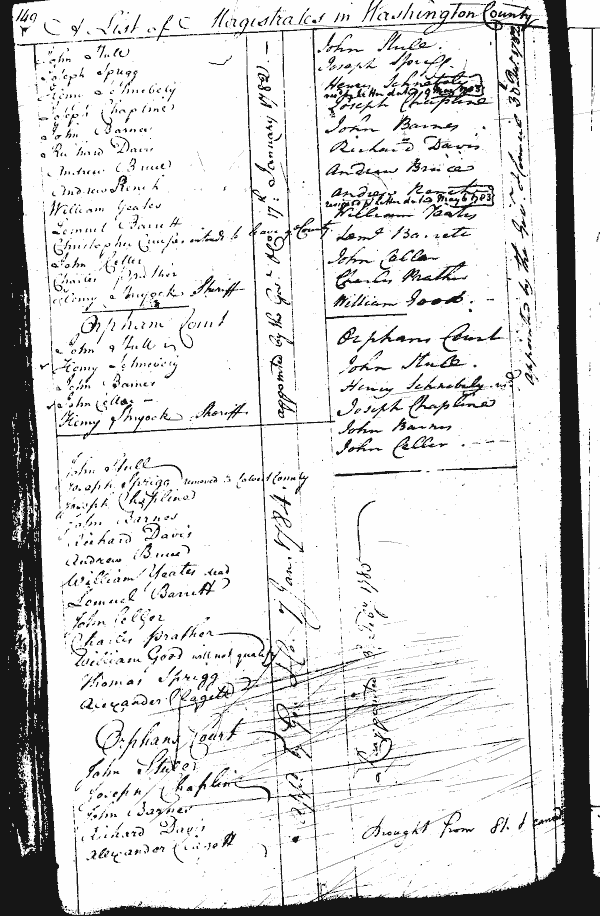 149
A List of Magistrates in Washington County
John Stull
Joseph Sprigg
Henry Schnebely
Joseph Chapline
John Barnes
Richard Davis
Andrew Bruce
Andrew Rench
William Yeates
Lemuel Barrett
Christopher intends to leave ye County
John Celler
Charles Prather
Henry Shryock Sheriff
Orphans Court
John Stull
Henry Schnebely
John Barnes
John Celler
Henry Shryock Sheriff
appointed by the Govr 17: January 1782
John Stull.
Joseph Sprigg
Henry Schnebely
May 1783
Joseph Chapline
John Barnes
Richard Davis
Andrew Bruce
Andrew Rench
resigned p letter dated May 6 1783
William Yeates
Leml Barrett
John Celler
Charles Prather
William Good.
Orphans Court
John Stull.
Henry Schnebely
Joseph Chapline
John Barnes
John Celler.
appointed by the Govr & Council
John Stull
Joseph Sprigg removed to Calvert County
Joseph Chapline
John Barnes
Richard Davis
Andrew Bruce
William Yeates dead
Lemuel Barrett
John Celler
Charles Prather
William Good will not qualify
Thomas Sprigg
Alexander Clagett
Orphans Court
John Stull
Joseph Chapline
John Barnes
Richard Davis
Alexander Clagett
Jany 1784.
Reappointed 1785
Brought from